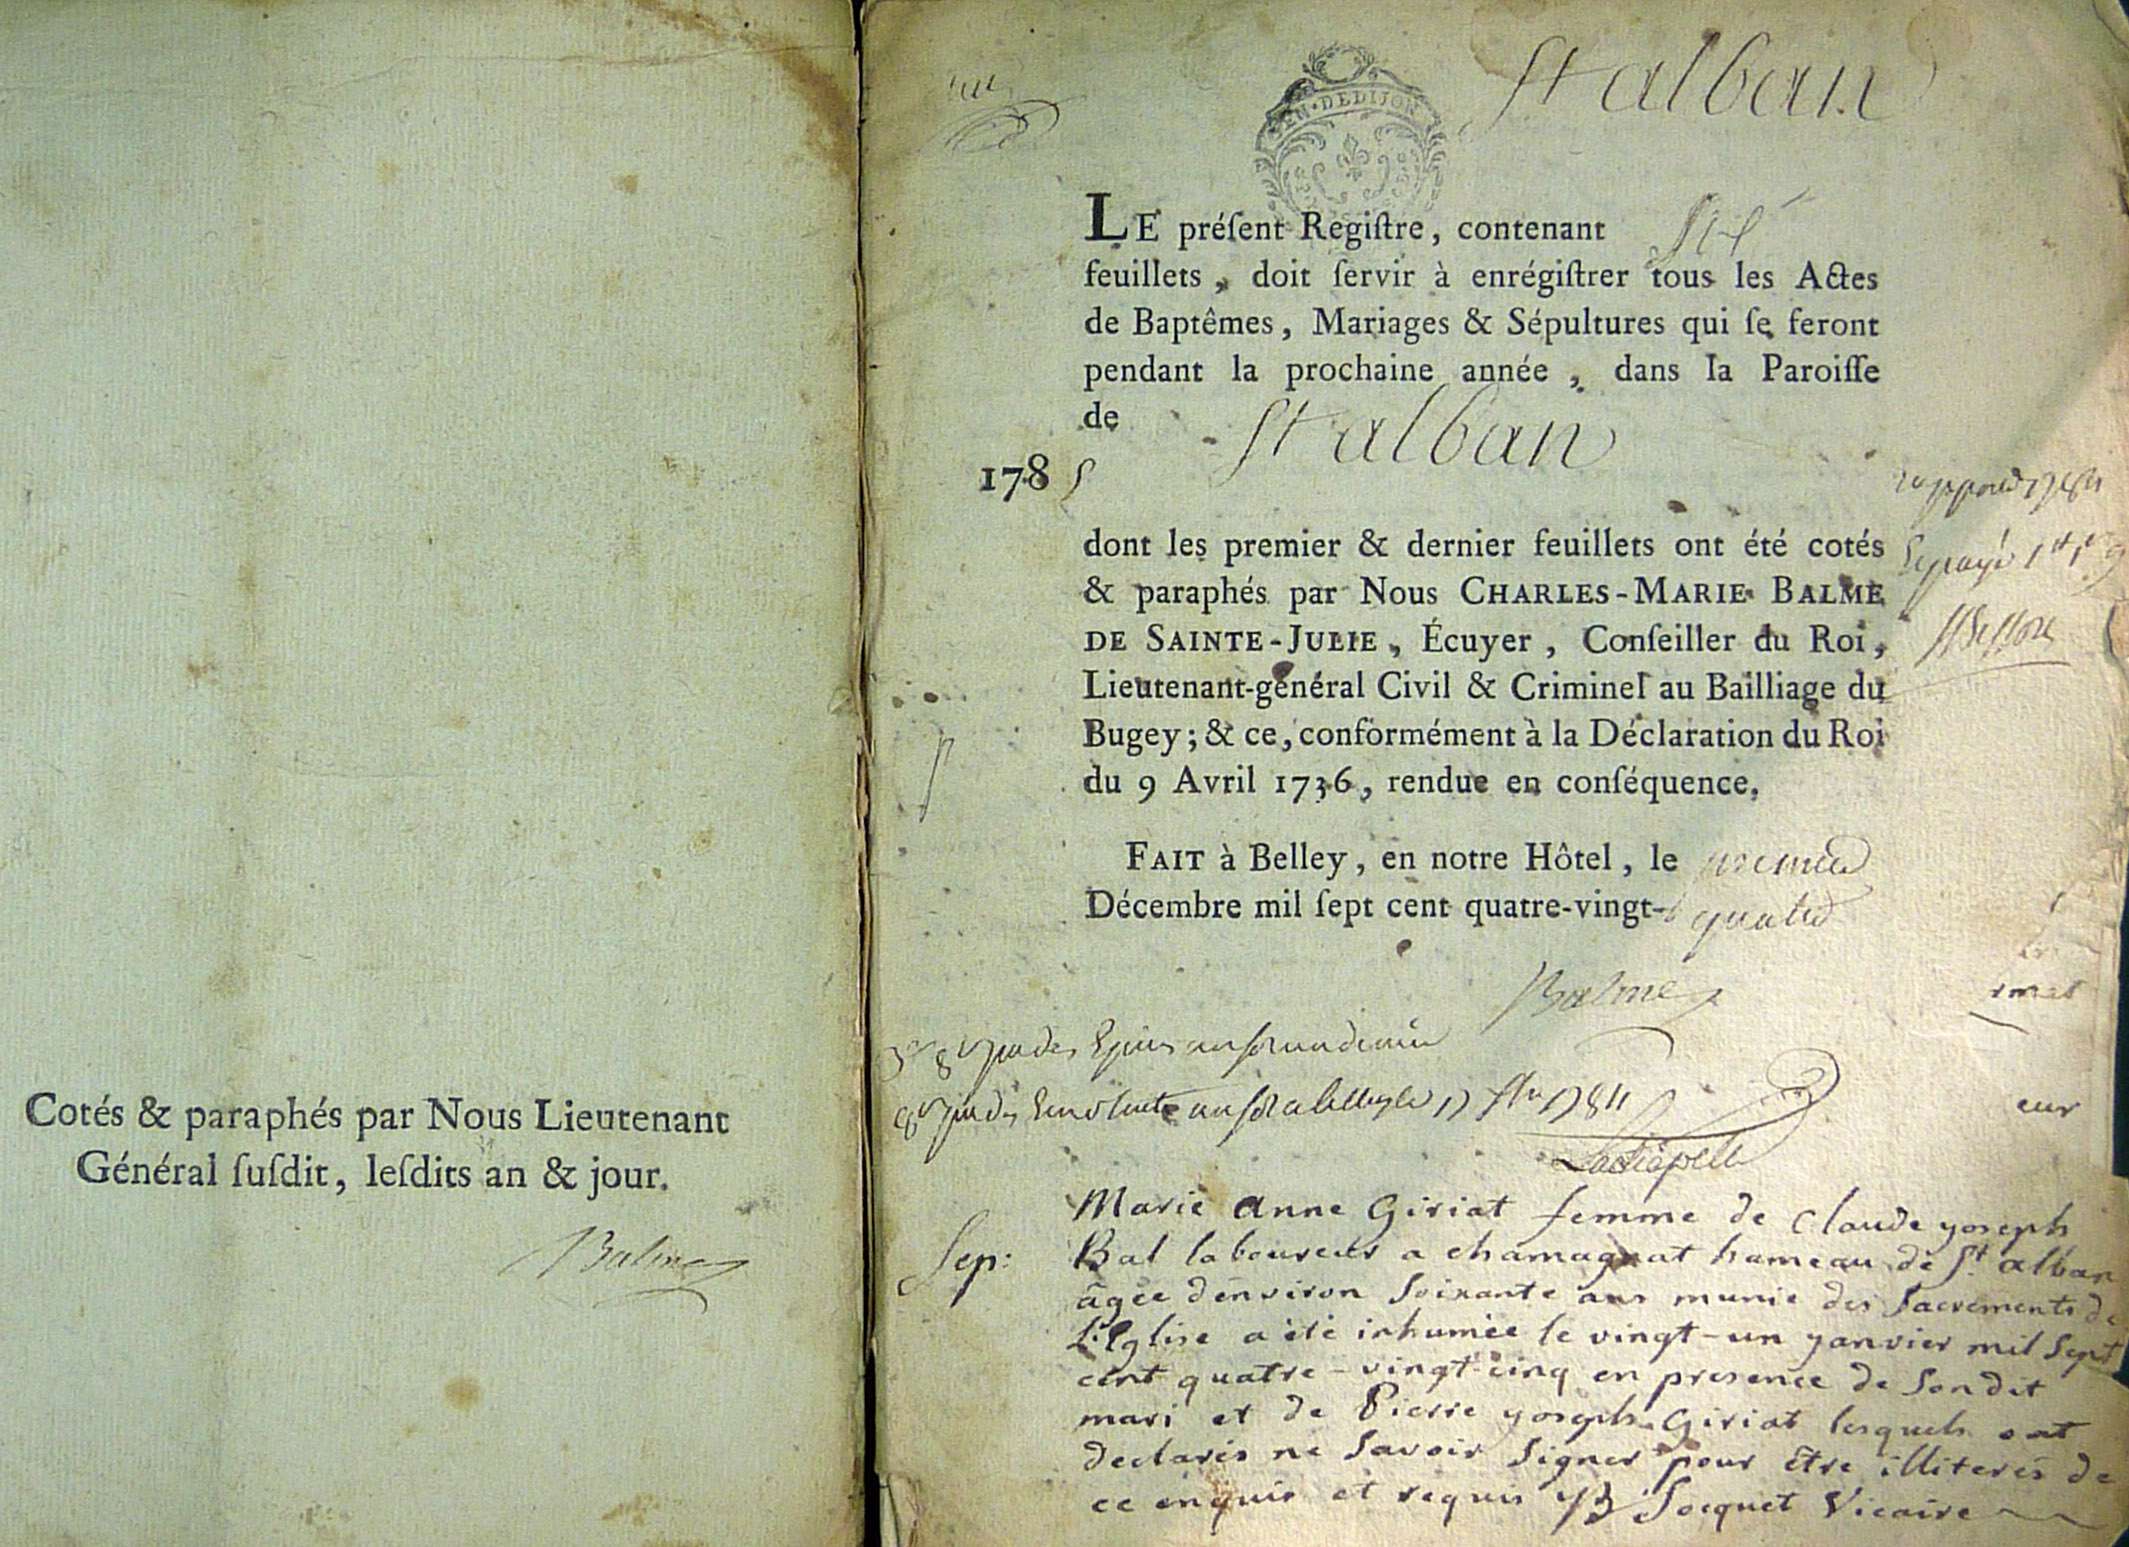 Cotés & paraphés par Nous Lieutenant
Général ſuſdit, leſdits an & jour.
Balme
GEN. DE DIJON
St alban
LE préſent Regiſtre, contenant Six
feuillets, doit ſervir à enrégiſtrer tous les Actes
de Baptêmes, Mariages & Sépultures qui ſe feront
pendant la prochaine année, dans la Paroiſſe
de St alban
1785
dont les premier & dernier feuillets ont été cotés
& paraphés par Nous CHARLES-MARIE BALME
DE SAINTE-JULIE, Écuyer, Conſeiller du Roi,
Lieutenant-général Civil & Criminel au Bailliage du
Bugey; & ce, conformément à la Déclaration du Roi
du 9 Avril 1736, rendue en conſéquence.
FAIT à Belley, en notre Hôtel, le premier
Décembre mil ſept cent quatre-vingt-quatre
Balme
1784
Marie Anne Giriat femme de Claude yoseph
Sep: Bal laboureur a chamagnat hameau de St. alban
âgée d'environ Soixante ans munie des Sacrements de
L'Eglise a été inhumée le vingt-un yanvier mil Sept
cent quatre-vingt-cinq en presence de Son dit
mari et de Pierre yoseph Giriat lesquels ont
declarés ne Savoir Signer pour être illiterés de
ce enquis et requis Jocquet Vicaire